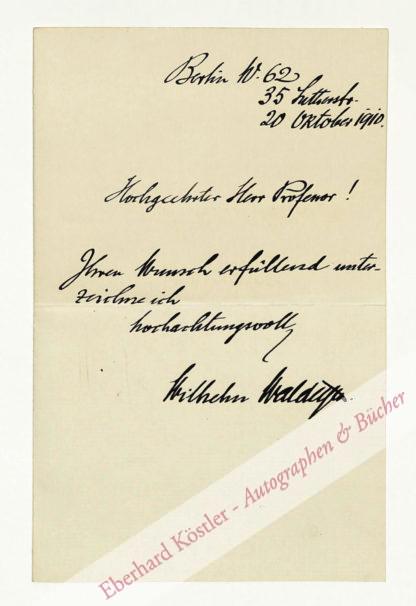 Berlin W. 62
35 Lutherstr.
20 Oktober 1910.
Hochgeehrter Herr Professor!
Ihren Wunsch erfüllend unter-
zeichne ich
hochachtungsvoll
Wilhelm
Eberhard Köstler - Autographen & Bücher